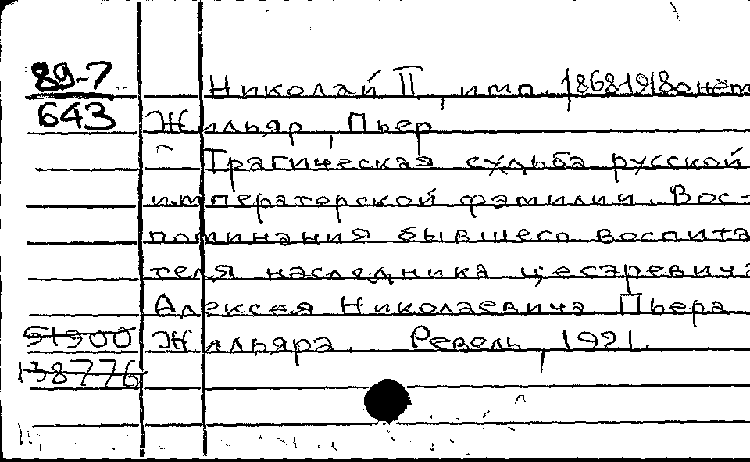 89-7
643
Николай II, имп. 1868-1918 о нем
Жильяр, Пьер
Трагическая судьба русской
императорской фамилии. Вос-
поминания бывшего воспита
теля наследника цесаревича
Алексея Николаевича Пьера
Жильяра. Ревель, 1921.
51900
138776